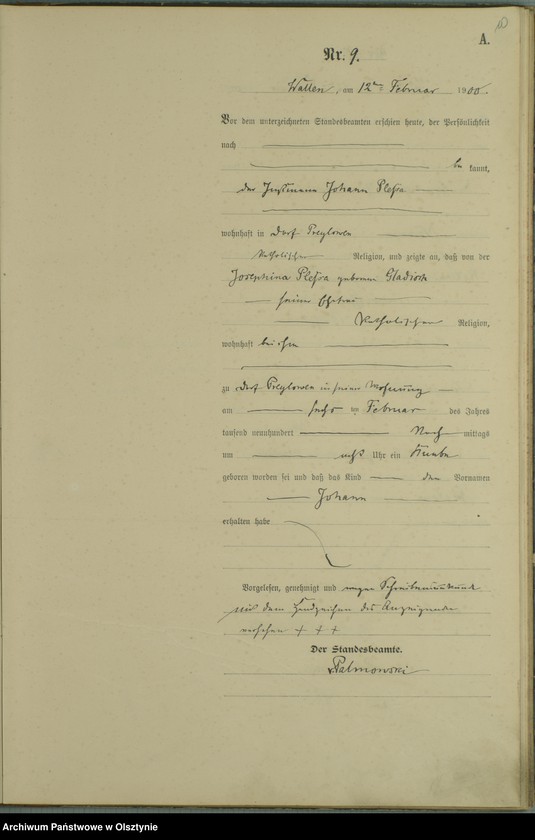 A.
Nr. 9.
Wallen, am 12ten Februar 1900.
Vor dem unterzeichneten Standesbeamten erschien heute, der Persönlichkeit
nach
bekannt,
der Johann
wohnhaft in Dorf Preylowen
katholischer Religion, und zeigte an, daß von der
Josephina geborene Gladisch
seiner Ehefrau
katholischer Religion,
wohnhaft bei ihm
zu Dorf Preylowen in seiner Wohnung
am sechs ten Februar des Jahres
tausend neunhundert Nach mittags
um Uhr ein Knabe
geboren worden sei und daß das Kind den Vornamen
Johann
erhalten habe
Vorgelesen, genehmigt und wegen Schreibensunkunde
mit dem Handzeichen des Anzeigenden
versehen + + +
Der Standesbeamte.
Palmowski
Archiwum Państwowe w Olsztynie